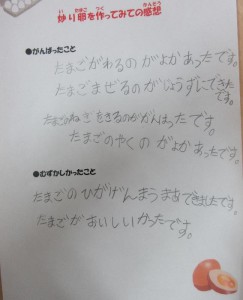 炒り卵を作ってみての感想
●がんばったこと
たまごがわるのがよかあったです。
たまごまぜるのがじょうずにできた
です。
たまごのねぎをきるのががんばったです。
たまごのやくのがよかあったです。
●むずかしかったこと
たまごのひがげんまうまができましたです。
たまごがおいしいかったです。